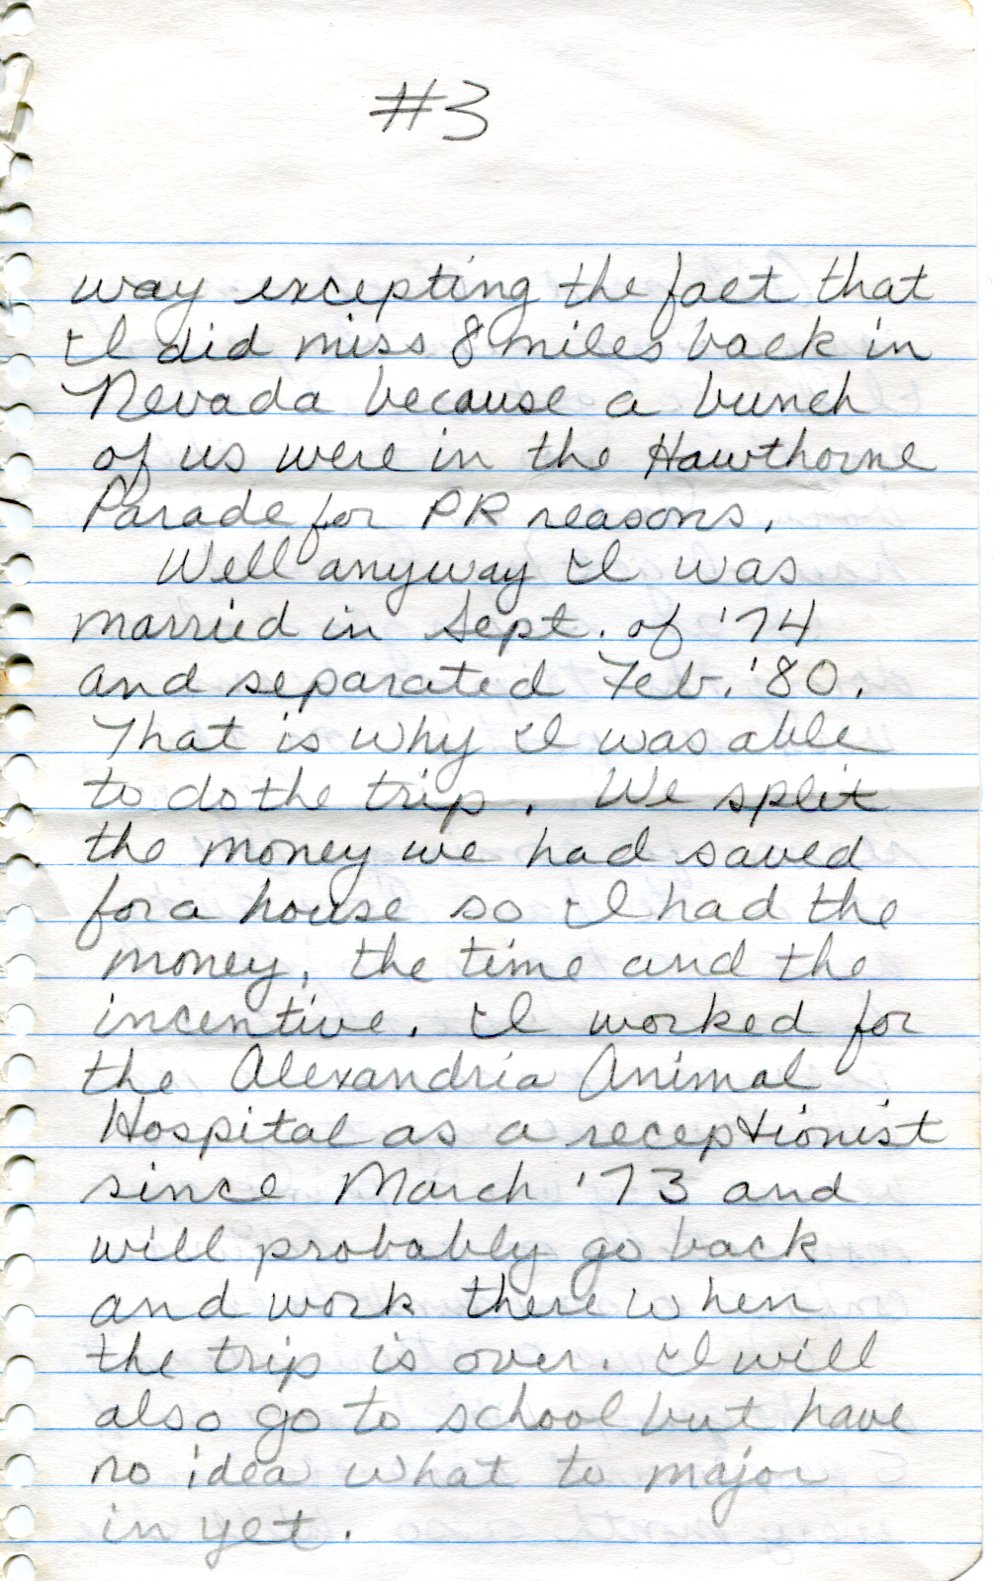 #3
way excepting the fact that
I did miss 8 miles back in
Nevada because a bunch
of us were in the Hawthorne
Parade for PR reasons.
Well anyway I was
married in Sept. of '74
and separated Feb. '80.
That is why I was able
to do the trip. We split
the money we had saved
for a house so I had the
money, the time and the
incentive. I worked for
the Alexandria Animal
Hospital as a receptionist
since March '73 and
will probably go back
and work there when
the trip is over. I will
also go to school but have
no idea what to major
in yet.